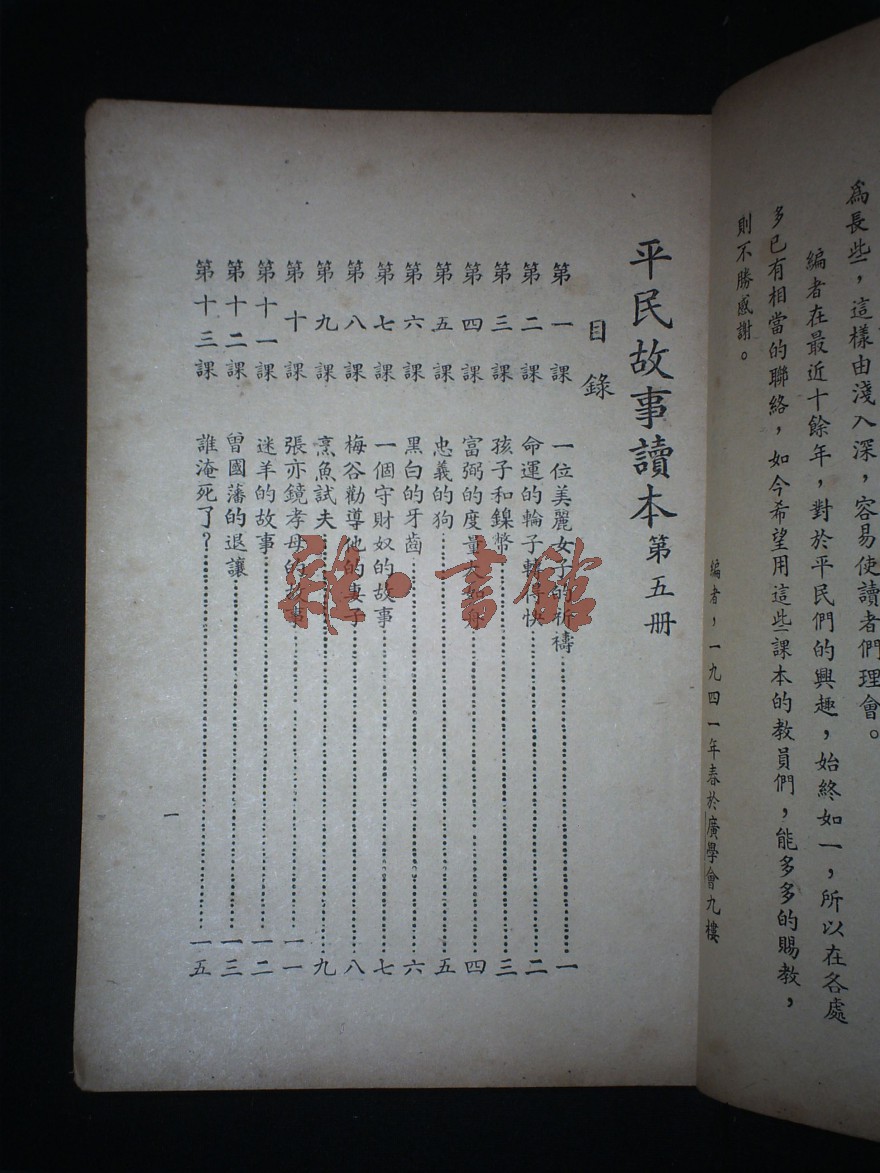 為長些，這樣由淺入深，容易使讀者們理會。
編者在最近十餘年，對於平民們的興趣，始終如一，所以在各處
多已有相當的聯絡，如今希望用這些課本的教員們，能多多的賜教，
則不勝感謝。
編者，一九四一年春於廣學會九樓
平民故事讀本第五冊
目錄
第一課 一位美麗女子的祈禱 一
第二課 命運的輪子轉得快 二
第三課 孩子和鎳幣 三
第四課 富弼的度量 四
第五課 忠義的狗 五
第六課 黑白的牙齒 六
第七課 一個守財奴的故事 七
第八課 梅谷勸導他的妻子 八
第九課 烹魚試夫 九
第十課 張亦鏡孝母的故事 一一
第十一課 迷羊的故事 一二
第十二課 曾國藩的退讓 一三
第十三課 誰淹死了？ 一五
一
雜·書館